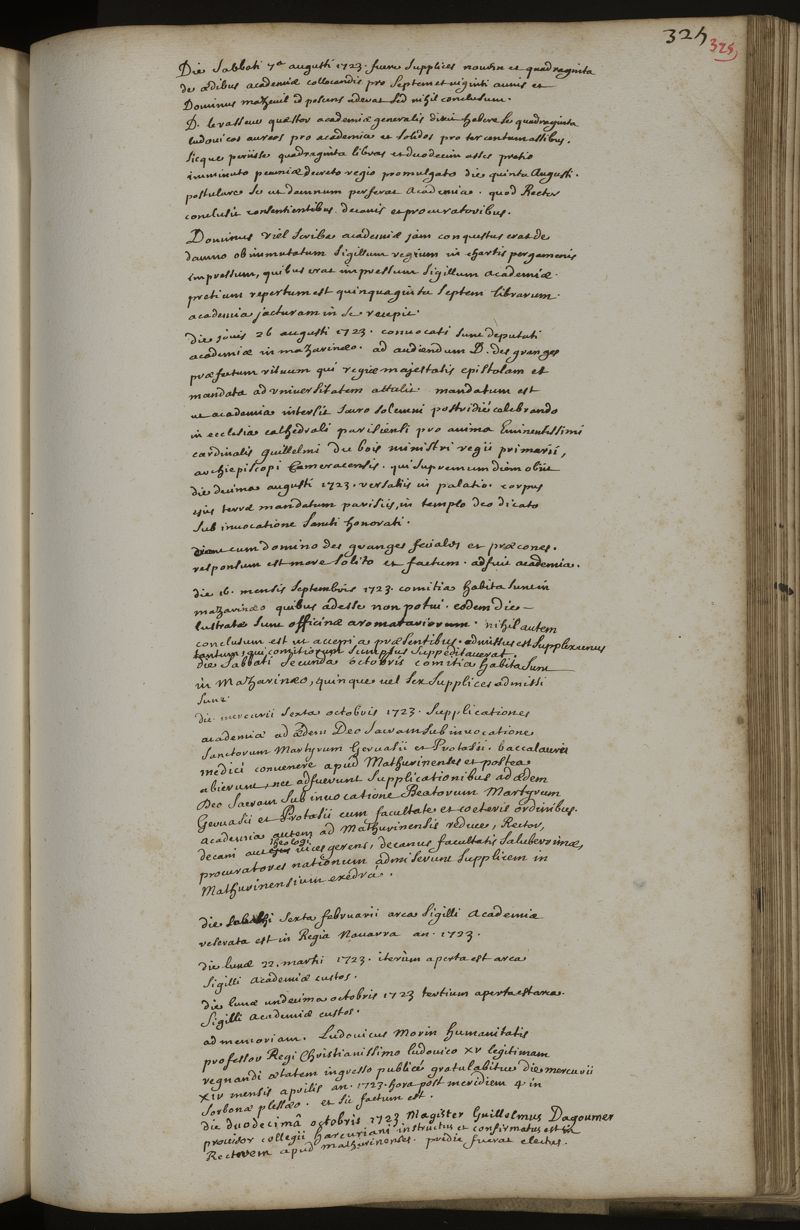 324 325
Die Sabbati 7ª augusti 1723. fuere supplices novem et quadraginta
de ædibus academiæ collocandis pro septem et viginti annis et
Dominus mazheuil id poscens aderat sed nihil conclusum.
D. levasseur quæstor academiæ generalis dixit habere se quadraginta
ludovicos aureos pro academia et solidos pro ter centum assibus.
sicque periisse quadraginta libras et duodecim asses pretio
imminuto pecuniæ decreto regio promulgato die quinta Augusti.
postulare se ut damnum perferat academia. quod Rector
conclusit consentientibus decanis et procuratoribus.
Dominus Viel scriba academiæ jam conquestus erat de
damno ob immutatum sigillum regium in chartis pergamenis
impressum, quibus erat impressum sigillum academiæ.
pretium repertum est quinquaginta septem librarum.
academia jacturam in se recepit.
die jovis 26 augusti 1723. convocati sunt deputati
academiæ in mazarinæo. ad audiendum D. des granges
præfectum rituum qui regiæ majestatis epistolam et
mandata ad universitatem attulit. mandatum est
ut academia intersit sacro solemni postridie celebrando
in ecclesia cathedrali parisiensi pro anima Eminentissimi
cardinalis guillelmi du bois ministri regii primarii,
archiepiscopi Cameracensis. qui supremum diem obiit
die decima augusti 1723. versaliis in palatio. corpus
ejus terræ mandatum parisiis, in templo deo dicato
sub invocatione sancti honorati.
cum domino des granges feciales et præcones.
responsum est more solito et factum. adfuit academia.
die 16. mensis septembris 1723. comitia habita sunt in
mazarinæo quibus adesse non potui. eodem die
lustratæ sunt officinæ aromatariorum. nihil autem
conclusum est ut accepi a præsentibus. admissus est supplex unus
tantum, qui comitiorum sumptus suppeditaverat.
die sabbati secunda octobris comitia habita sunt
in Mazarinæo, quinque vel sex supplices admissi
sunt.
die mercurii sexta octobris 1723. supplicationes
academiæ ad ædem Deo sacram sub invocatione
sanctorum Martyrum Gervasii et Protasii. baccalaurei
medici convenere apud Mathurinenses et postea
abierunt, nec adfuerunt supplicationibus ad ædem
Deo sacram sub invocatione Beatorum Martyrum
Gervasii et Protasii cum facultate et cœteris ordinibus.
academia autem ad Mathurinensis reduce, Rector,
decani theologi vices gerens, decanus facultatis saluberrimæ,
procuratores nationum admiserunt supplicem in
Mathurinensium exedrâ.
die sexta februarii arca sigilli academiæ
reserata est in Regia Navarra an. 1723.
die lunæ 22. martii 1723. iterùm aperta est arca
sigilli academiæ custos.
die lunæ undecima octobris 1723 tertium aperta est arca
sigilli academiæ custos.
ad memoriam. Ludovicus Morin humanitatis
professor Regi Christianissimo ludovico XV legitimam
regnandi ætatem ingresso publicè gratulabitur die mercurii
XIV mensis aprilis an. 1723. hora post meridiem 4. in
sorbonæ plessæo. et sic factum est.
die duodecimâ octobris 1723 Magister Guillelmus Dagoumer
provisor collegii harcuriani instructus et confirmatus est in
Rectorem apud mathurinenses. pridie fuerat electus.